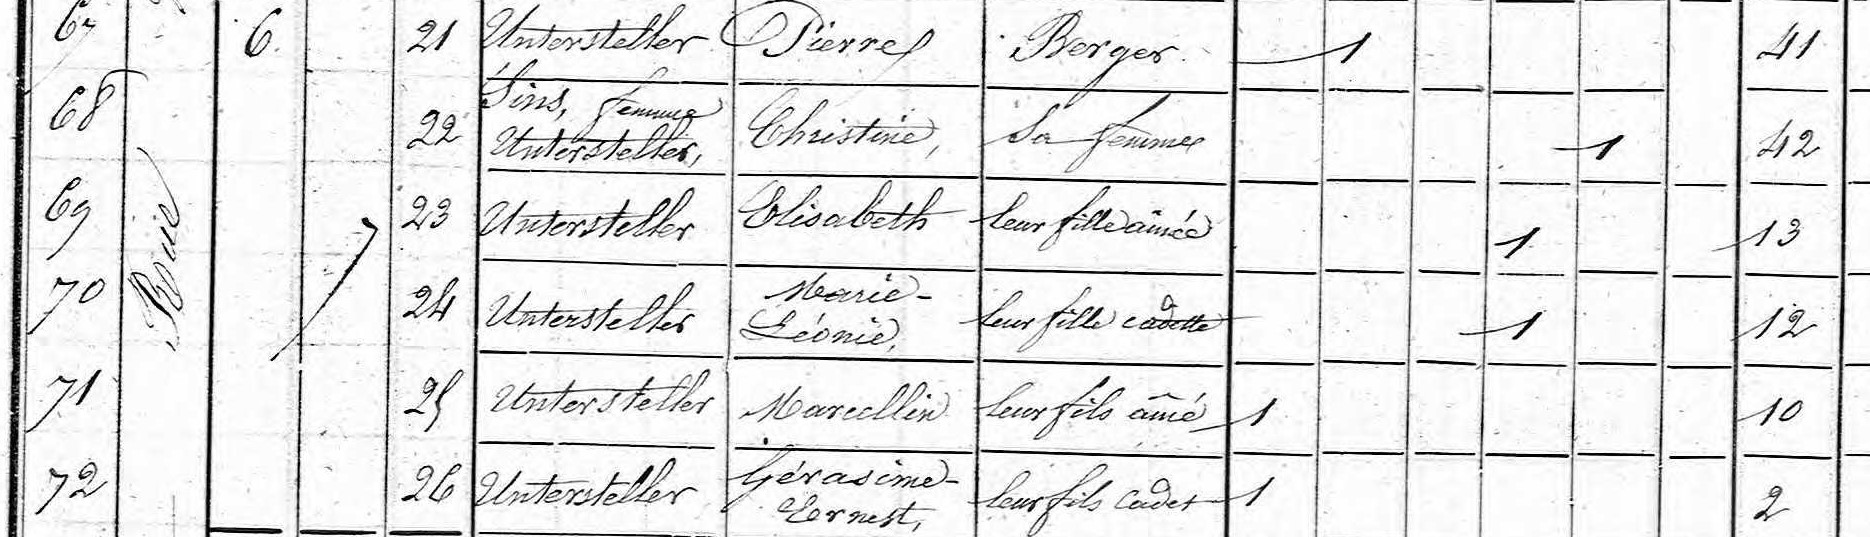 67 6 21 Untersteller Pierre Berger 1 41
68 22 Sins, femme Untersteller, Christine, Sa femme 1 42
69 23 Untersteller Elisabeth leur fille aînée 1 13
70 7 24 Untersteller Marie-Léonie, leur fille cadette 1 12
71 25 Untersteller Marcellin leur fils aîné 1 10
72 26 Untersteller Gérasime-Ernest, leur fils cadet 1 2